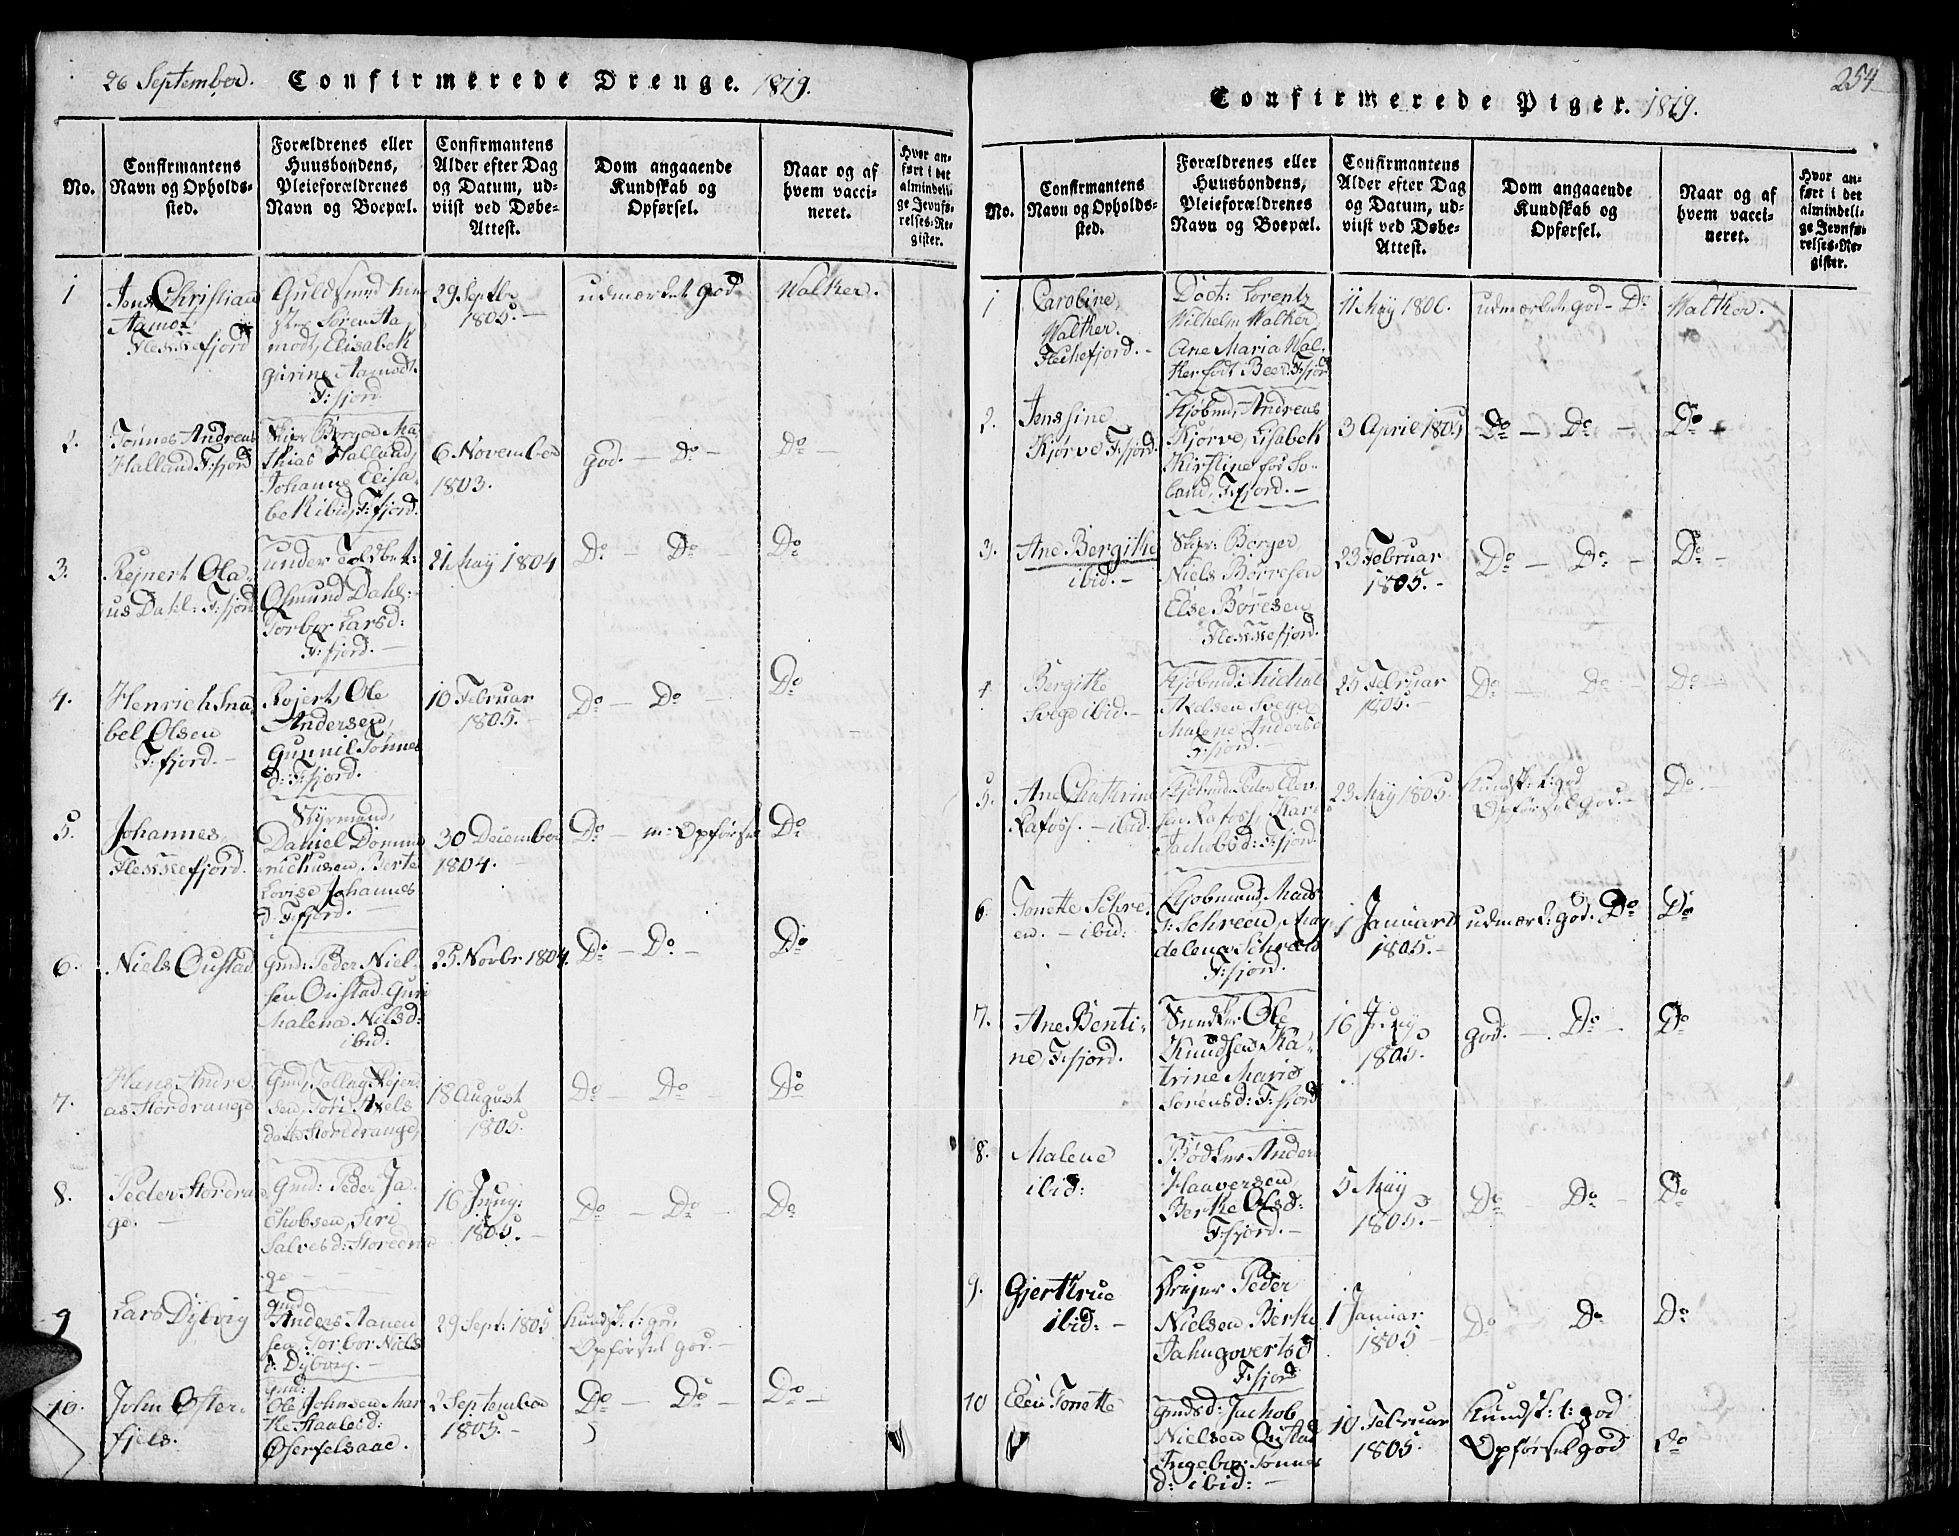 26 September. Confirmerede Drenge. 1819.
No.
Confirmantens
Navn og Opholds-
sted.
Forældrenes eller
Huusbondens,
Pleieforældrenes
Navn og Boepæl.
Confirmantens
Alder efter Dag
og Datum, ud-
viist ved Døbe-
Attest.
Dom angaaende
Kundskab og
Opførsel.
Naar og af
hvem vacci-
neret.
Hvor an-
ført i det
almindeli-
ge Jevnfø-
relses-Re-
gister.
1
Jens Christian
Aamot
Flekkefjord
Guldsmed
Søren Aa
modt, Elisabek
gurine Aamodt.
F:fjord
29 Septbr
1805.
udmærket god
Walker.
2.
Tønnes Andreas
Halland F:fjord
Skipr Berge Ma
thias Halland,
Johanne Elisa
bek ibid, F:fjord.
6 November
1803.
god. - Do -
Do -
3.
Rejnert Ola-
us Dahl: F:fjord
under Toldbet:
Osmund Dahl:
Torbor Larsd:
F:fjord.
21 May 1804
Do - Do -
Do
4.
Henrich Sna
bel Olsen
F:fjord. -
Rejert, Ole
Andersen,
Gunnil Tønnes
d: F:fjord.
10 Februar
1805. -
Do - Do -
Do
5.
Johannes,
Flekkefjord.
Styrmand,
Daniel Domini
nichusen, Berte
Lovise Johannes
d. F:fjord. -
30 December
1804. -
Do - m: Opførsel
Do
6.
Niels Oustad
Gmd: Peder Niel-
sen Oustad. Guri
Malena Nilsd:
ibid:
25 Novbr 1804.
Do - Do -
Do -
7.
Hans Andre
as Stordrange
Gmd, Tollag Rejer
sen, Tori Axels
datr Storedrange,
18 August
1805.
Do - Do -
Do
8.
Peder Stordran
ge. -
Gmd: Peder Ja
chobsen, Siri
Salvesd: Storedran
ge - -
16 Juny
1805. -
Do - Do -
Do
9
Lars Dybvig
gmd
Anders Aanen
sen, Torbor Niels
d: Dybvig. -
29 Sept: 1805
Kundsk: t: god,
Opførsel god. -
10.
John Øster-
fjels.
Gmd:
Ole Johnsen Mar
the Staalesd:
Øserfelsaae.
2 September
1805. -
Do - Do -
Do -
254
Confirmerede Piger. 1819.
No.
Confirmantens
Navn og Opholds-
sted.
Forældrenes eller
Huusbondens,
Pleieforældrenes
Navn og Boepæl.
Confirmantens
Alder efter Dag
og Datum, ud-
viist ved Døbe-
Attest.
Dom angaaende
Kundskab og
Opførsel.
Naar og af
hvem vacci-
neret.
Hvor an-
ført i det
almindeli-
ge Jevnfø-
relses-Re-
gister.
1
Caroline,
Walther.
Flekefjord. -
Doct: Lorentz
Wilhelm Walker
Ane Maria Wal-
ker født Beer F:fjord
11 May 1806.
udmærket god - Do
Walther.
2.
Jensine
Kjørve F:fjord.
Kjøbmd, Andreas
Kjørve, Lisabek
Kirstine før So-
land, F:fjord. -
3 April 1805
Do - Do -
Do -
3.
Ane Bergithe
ibid. -
Skipr: Borger
Niels Børresen
Else Børesen
Flekkefjord.
23 Februar
1805. -
Do - Do -
Do -
4
Bergithe
Svege ibid. -
Kjøbmd: Michal
Axelsen Svege
Malene Andersd
F:fjord. -
25 Februar
1805.
Do - Do -
Do -
5.
Ane Chathrine
Rafoss. - ibid.
Kjøbmd: Peder Elev
sen Rafoss, Mari
Jachobsd: F:fjord.
23 May 1805.
Kundsk: t: god
Opførsel god. -
Do -
6.
Tonette Schre
en. - ibid:
Kjøbmand, Mads
F: Schreen, Mag
delena Schreen
F:fjord.
1 Januarii
1805. -
udmærk: god. Do
Do
7.
Ane Benti-
ne F:fjord.
Snedker Ole
Knudsen Ka-
trine Marie
Sørensd: F:fjord
16 Juny
1805.
god. - Do -
Do
8.
Malene
ibid:
Bødker Anders
Haaversen
Berte Olsd:
F:fjord. -
5 May
1805. -
Do - Do -
Do
9.
Gjerthrue
ibid: -
Peder
Nielsen Berke
Jahngovertsd
F:fjord
1 Januar
1805 -
Do - Do
Do -
10
Elen Tonette
gmdsd: Jachob
Nielsen Oustad
Ingebor: Tønnes
d: ibid: -
10 Februar
1805.
Kundsk: t: god
Opførsel god
do